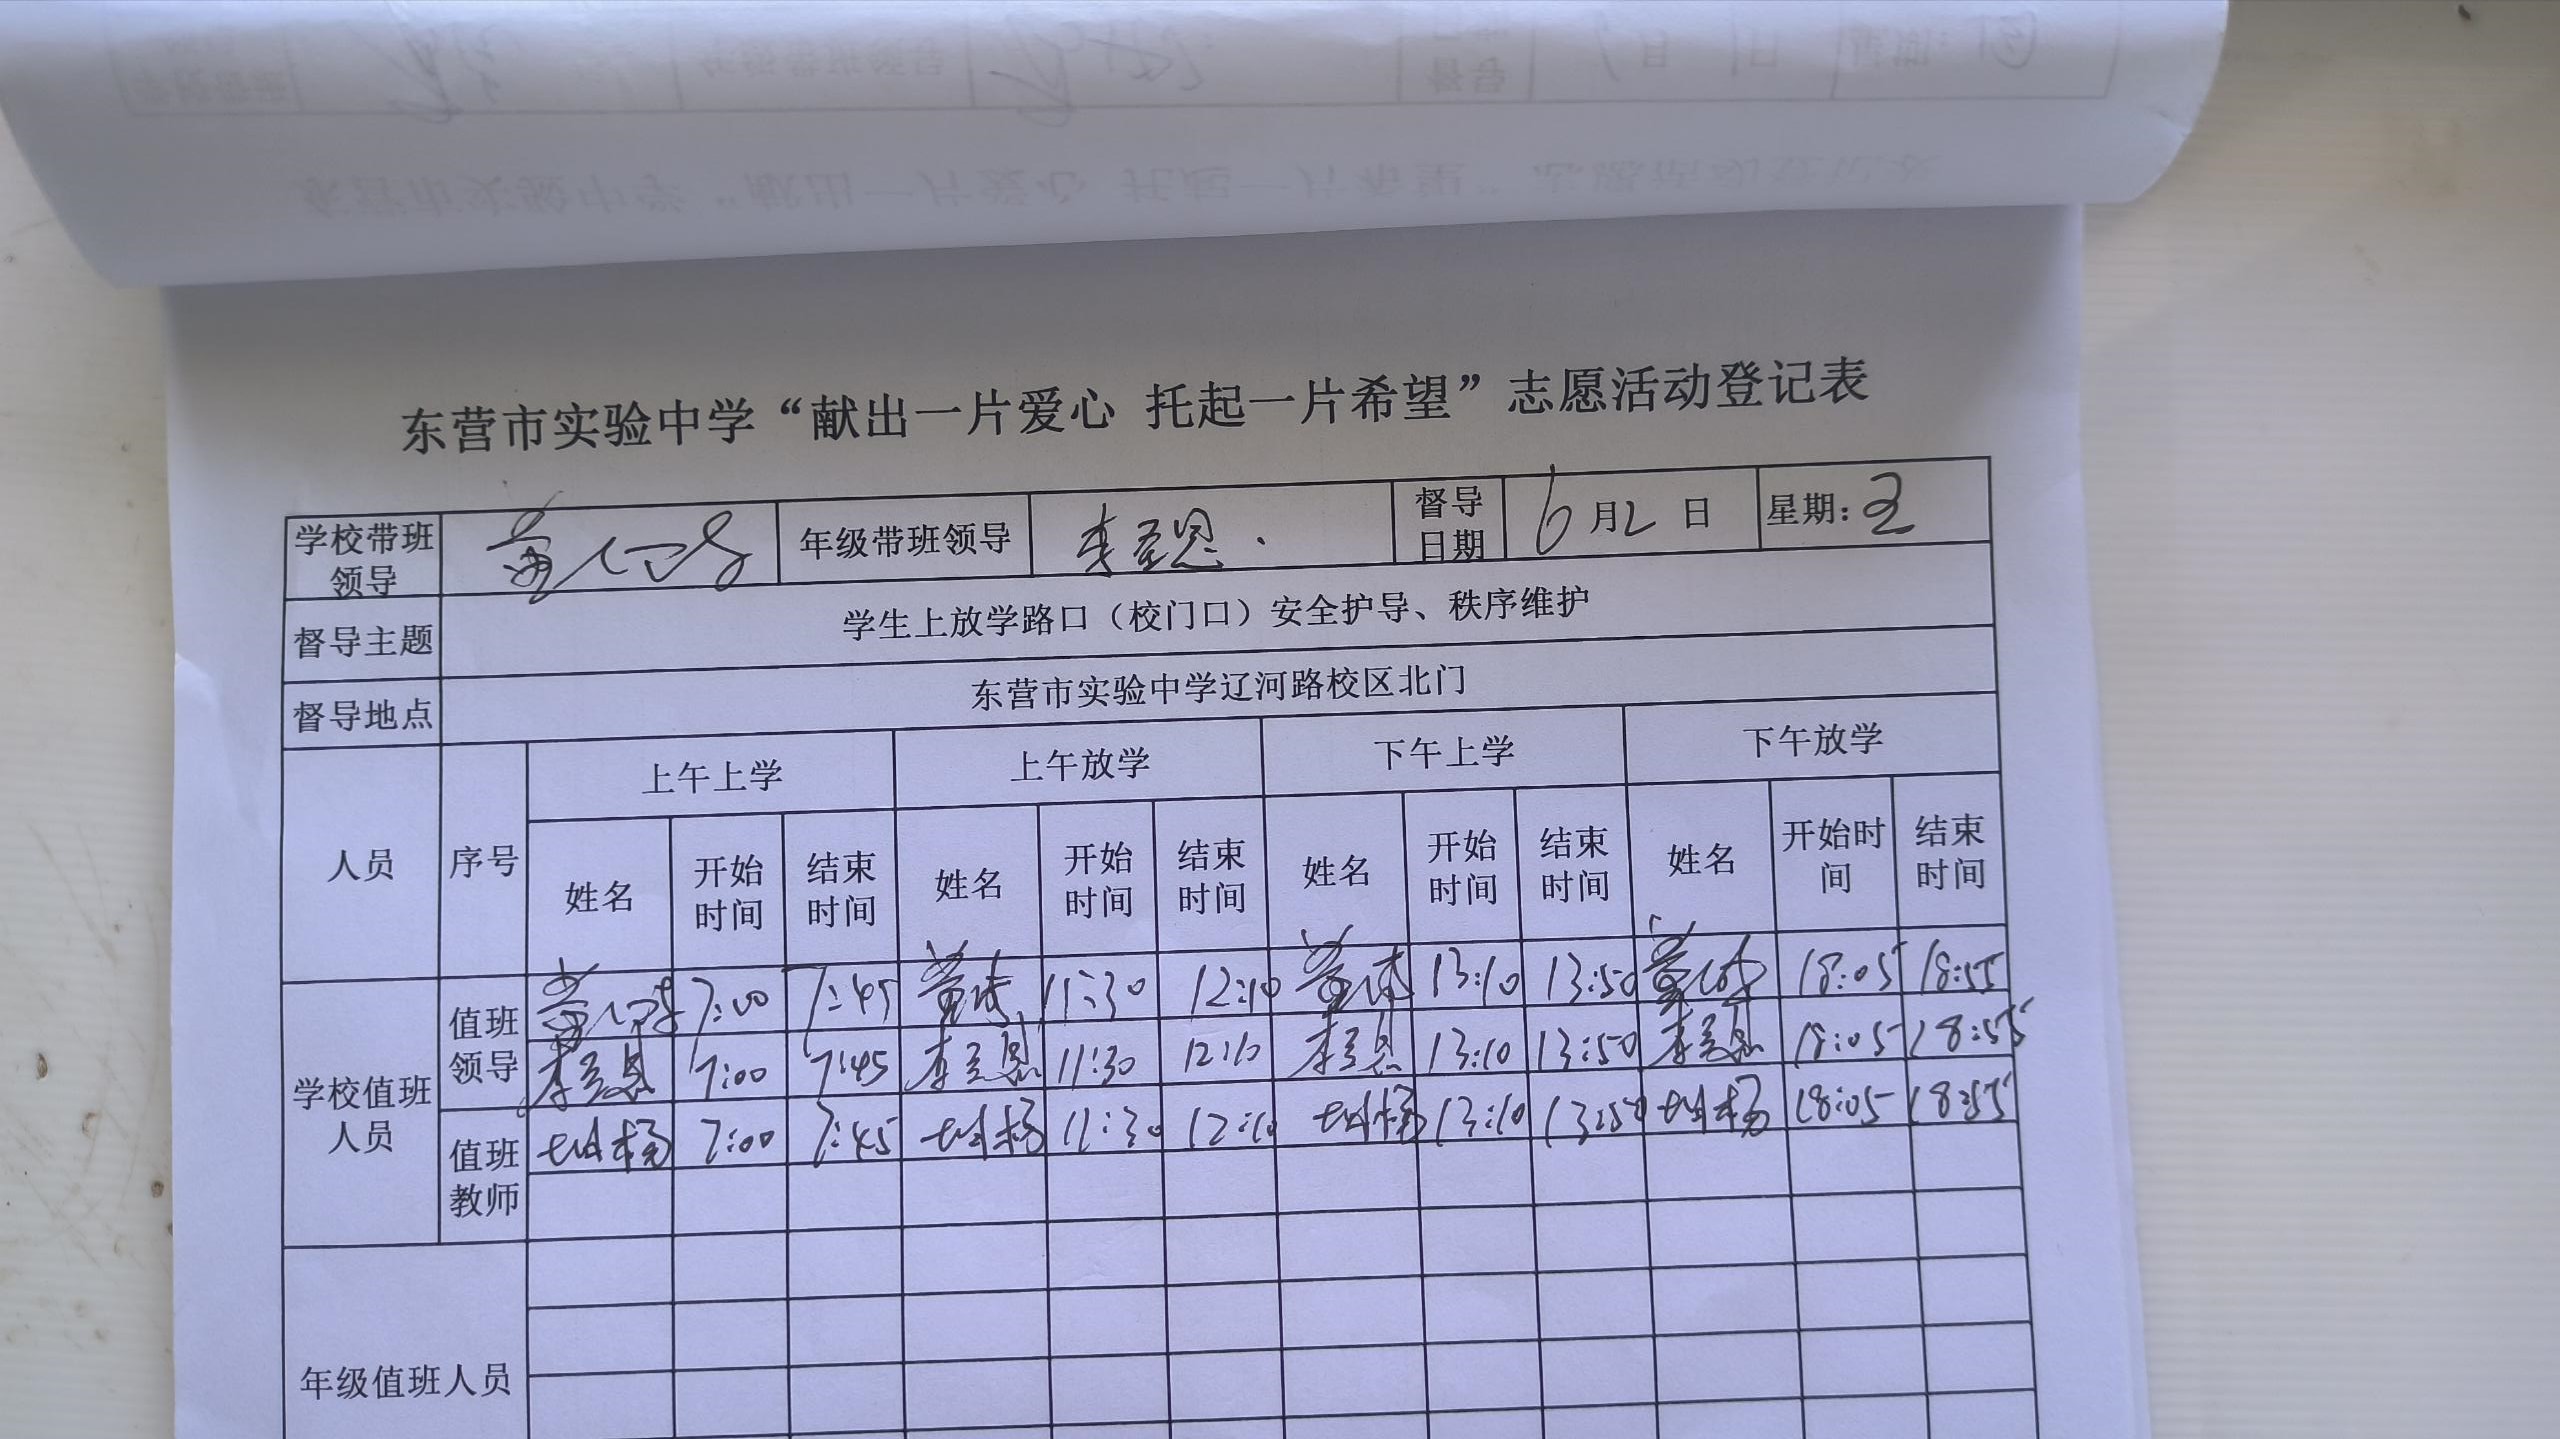 东营市实验中学“献出一片爱心 托起一片希望”志愿活动登记表
学校带班领导 年级带班领导 督导日期 6月2日 星期:五
督导主题 学生上放学路口（校门口）安全护导、秩序维护
督导地点 东营市实验中学辽河路校区北门
人员 序号 上午上学 上午放学 下午上学 下午放学
姓名 开始时间 结束时间 姓名 开始时间 结束时间 姓名 开始时间 结束时间 姓名 开始时间 结束时间
学校值班人员 值班领导 7:00 7:45 11:30 12:10 13:10 13:50 18:05 18:55
7:00 7:45 11:30 12:10 13:10 13:50 18:05 18:55
值班教师 7:00 7:45 11:30 12:10 13:10 13:50 18:05 18:55
年级值班人员